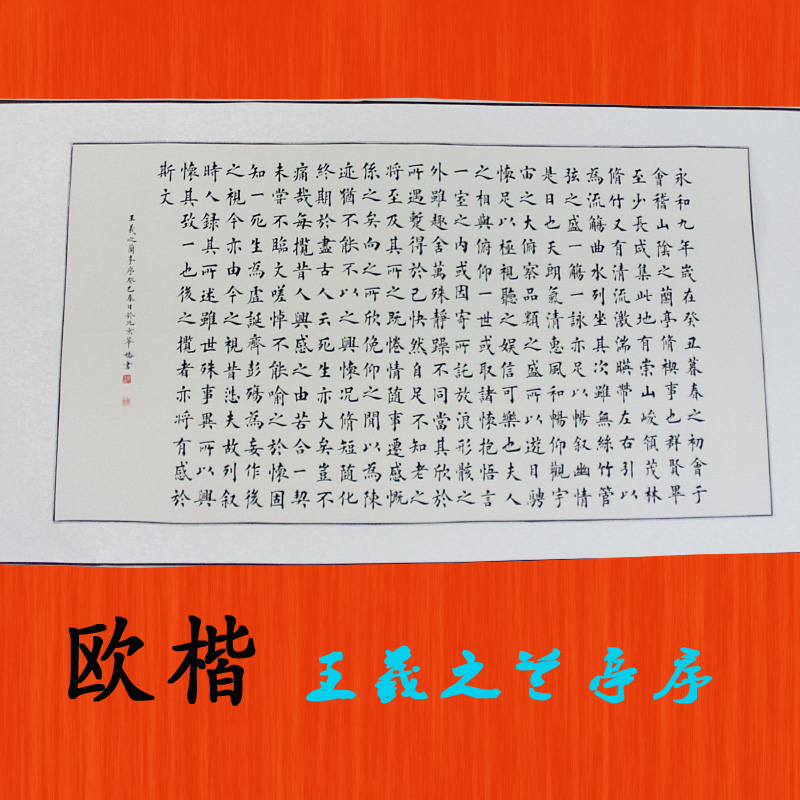 永和九年歲在癸丑暮春之初會于
會稽山陰之蘭亭脩禊事也群賢畢
至少長咸集此地有崇山峻領茂林
脩竹又有清流激湍暎帶左右引以
為流觴曲水列坐其次雖無絲竹管
弦之盛一觴一詠亦足以暢叙幽情
是日也天朗氣清惠風和暢仰觀宇
宙之大俯察品類之盛所以遊目騁
懷足以極視聽之娱信可樂也夫人
之相與俯仰一世或取諸懷抱悟言
一室之内或因寄所託放浪形骸之
外雖趣舍萬殊靜躁不同當其欣於
所遇蹔得於己快然自足不知老之
將至及其所之既惓情隨事遷感慨
係之矣向之所欣俛仰之閒以為陳
迹猶不能不以之興懷况脩短隨化
終期於盡古人云死生亦大矣豈不
痛哉每攬昔人興感之由若合一契
未嘗不臨文嗟悼不能喻之於懷固
知一死生為虛誕齊彭殤為妄作後
之視今亦由今之視昔悲夫故列叙
時人録其所述雖世殊事異所以興
懷其致一也後之攬者亦將有感於
斯文
王羲之蘭亭序癸巳春日於北京
欧楷 王羲之兰亭序